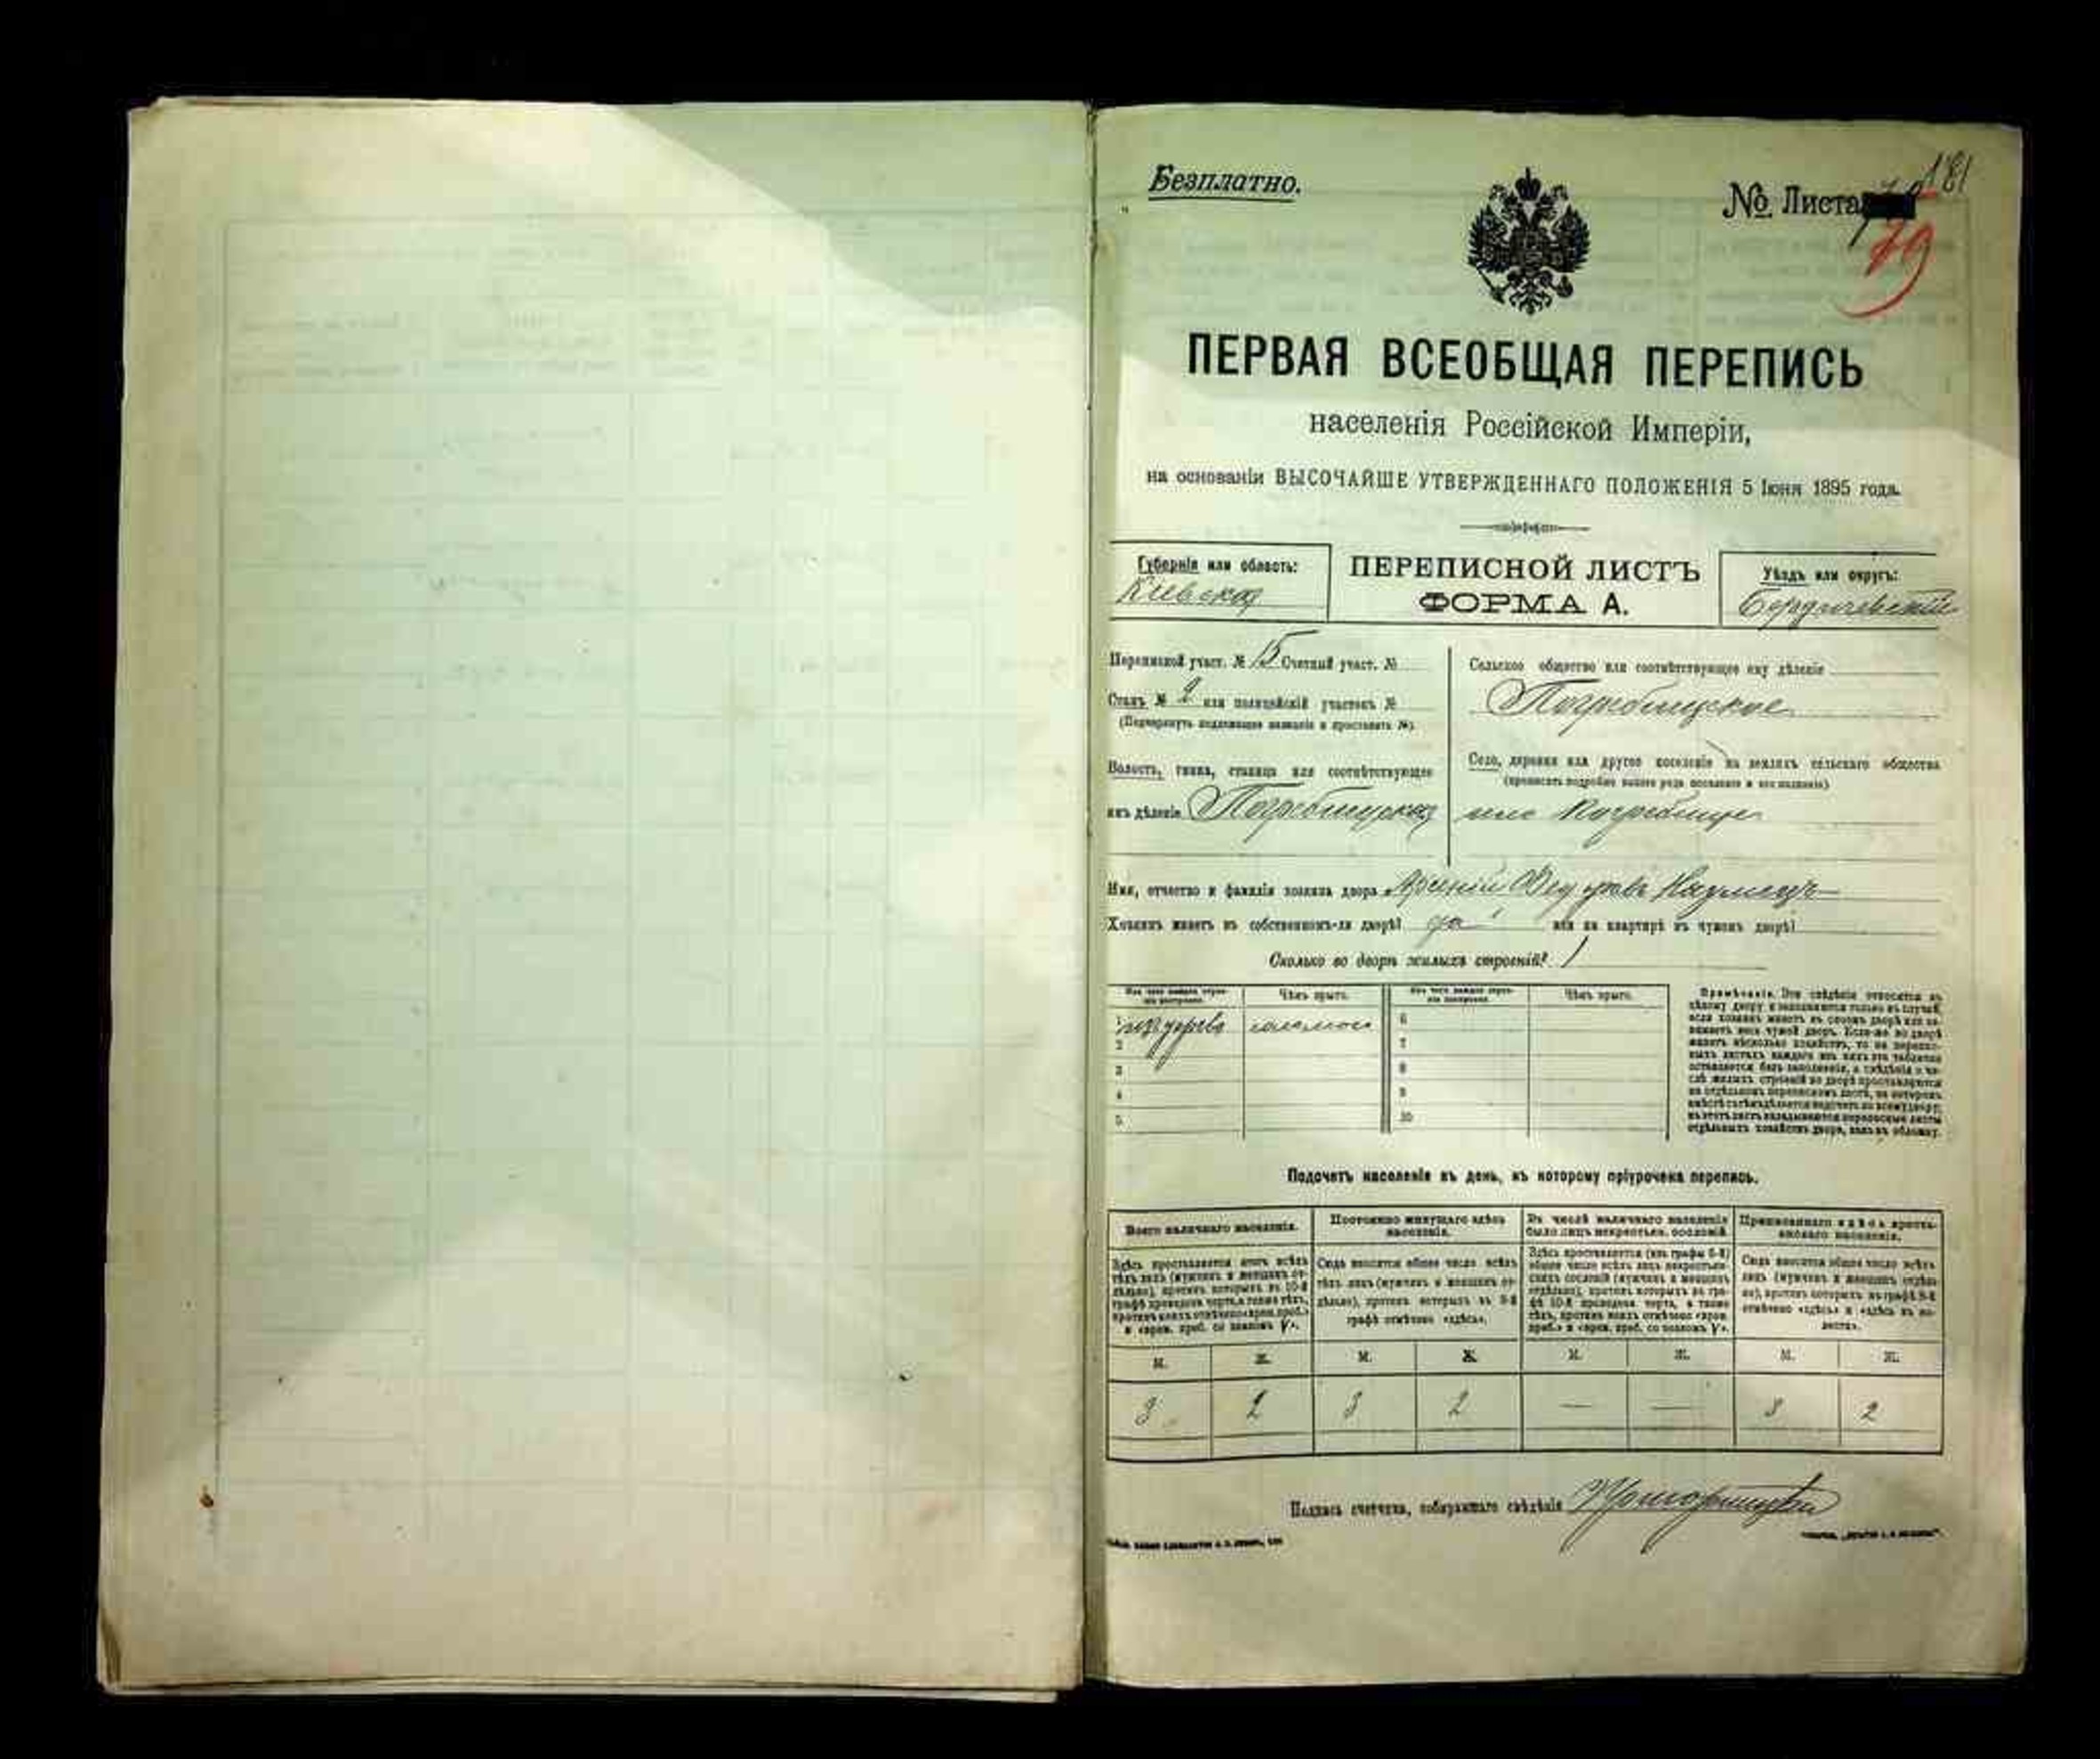 Безплатно.
181
№ Листа
79
ПЕРВАЯ ВСЕОБЩАЯ ПЕРЕПИСЬ
населенія Россійской Имперіи,
на основаніи ВЫСОЧАЙШЕ УТВЕРЖДЕННАГО ПОЛОЖЕНІЯ 5 Іюня 1895 года.
Губернія или область:
Кіевская
ПЕРЕПИСНОЙ ЛИСТЪ
ФОРМА А.
Уѣздъ или округъ:
Бердичевскій
Переписной участ. № 15 Счетный участ. №
Станъ № 2 или полицейскій участокъ №
(Подчеркнуть подлежащее названіе и проставить №)
Волость, гмина, станица или соотвѣтствующее
имъ дѣленіе Погребищская
Сельское общество или соотвѣтствующее ему дѣленіе
Погребищское
Село, деревня или другое поселеніе на земляхъ сельскаго общества
(прописать подробно какого рода поселеніе и его названіе)
Погребище
Имя, отчество и фамилія хозяина двора Арсеній
Хозяинъ живетъ въ собственномъ-ли дворѣ? да или на квартирѣ въ чужомъ дворѣ?
Сколько во дворѣ жилыхъ строеній? 1
Изъ чего каждое строеніе построено. Чѣмъ крыто. Изъ чего каждое строеніе построено. Чѣмъ крыто.
1 изъ дерева соломою 6
2 7
3 8
4 9
5 10
Примѣчаніе. Эти свѣдѣнія относятся къ
цѣлому двору и заполняются только въ случаѣ,
если хозяинъ живетъ въ своемъ дворѣ или занимаетъ
весь чужой дворъ. Если-же во дворѣ
живетъ нѣсколько хозяйствъ, то на переписныхъ
листахъ каждаго изъ нихъ эта табличка
оставляется безъ заполненія, а свѣдѣнія о числѣ
жилыхъ строеній во дворѣ проставляются
на отдѣльномъ переписномъ листѣ, на которомъ
вмѣстѣ съ тѣмъ дѣлается подсчетъ по всему двору;
въ этотъ листъ вкладываются переписные листы
отдѣльныхъ хозяйствъ двора, какъ въ обложку.
Подсчетъ населенія въ день, къ которому пріурочена перепись.
Всего наличнаго населенія.
Здѣсь проставляется итогъ всѣхъ
тѣхъ лицъ (мужчинъ и женщинъ отдѣльно),
противъ которыхъ въ 10-й
графѣ проведена черта, а также тѣхъ,
противъ коихъ отмѣчено «врем. преб.»
и «врем. преб. со знакомъ V».
Постоянно живущаго здѣсь
населенія.
Сюда вносится общее число всѣхъ
тѣхъ лицъ (мужчинъ и женщинъ отдѣльно),
противъ которыхъ въ 9-й
графѣ отмѣчено «здѣсь».
Въ числѣ наличнаго населенія
было лицъ некрестьян. сословій.
Здѣсь проставляется (изъ графы 6-й)
общее число всѣхъ лицъ некрестьянскихъ
сословій (мужчинъ и женщинъ
отдѣльно), противъ которыхъ въ графѣ
10-й проведена черта, а также
тѣхъ, противъ коихъ отмѣчено «врем.
преб.» и «врем. преб. со знакомъ V».
Приписаннаго здѣсь крестьянскаго
населенія.
Сюда вносится общее число всѣхъ
лицъ (мужчинъ и женщинъ отдѣльно),
противъ которыхъ въ графѣ 8-й
отмѣчено «здѣсь» и «здѣсь въ волости».
М. Ж. М. Ж. М. Ж. М. Ж.
3 2 3 2 — — 3 2
Подпись счетчика, собиравшаго свѣдѣнія